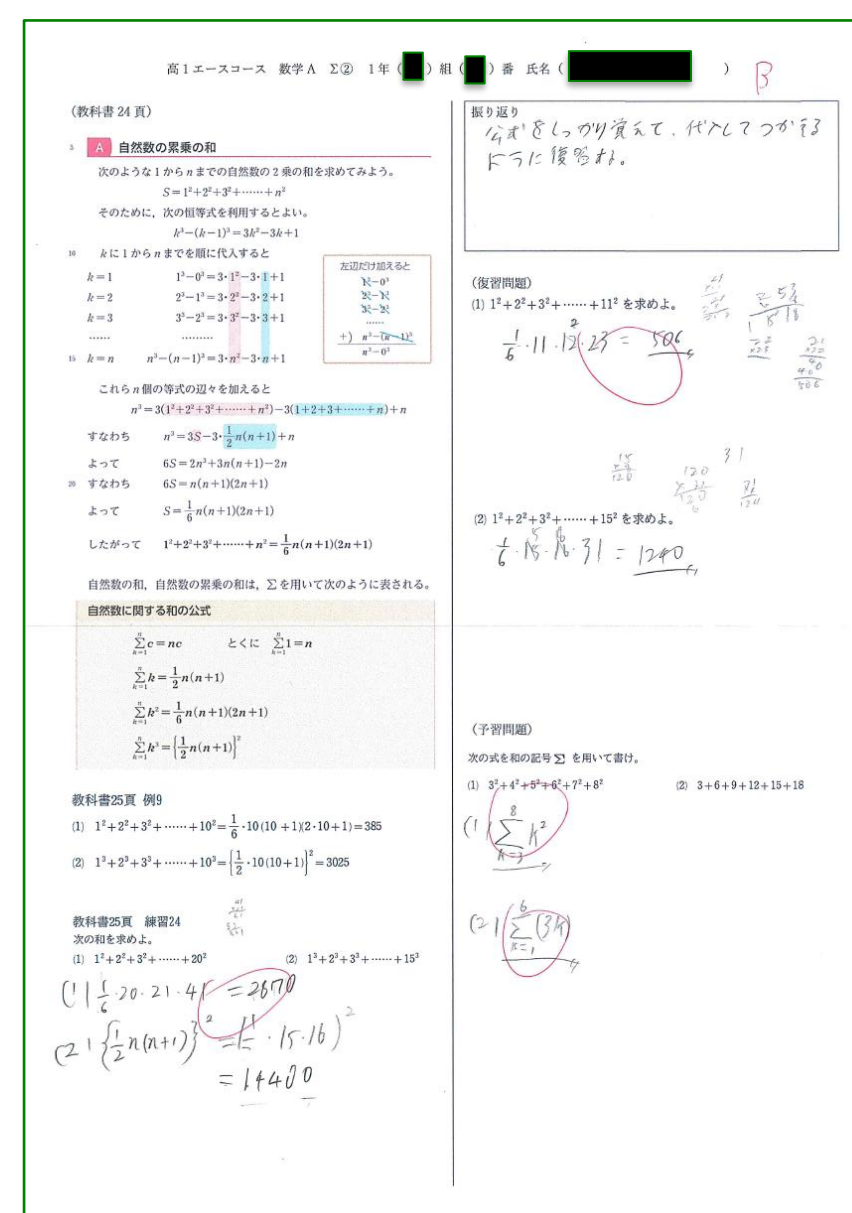 高1エースコース 数学A Σ② 1年( )組( )番 氏名( ) B
(教科書 24 頁)
5 A 自然数の累乗の和
次のような 1 から n までの自然数の 2 乗の和を求めてみよう。
S=1²+2²+3²+……+n²
そのために，次の恒等式を利用するとよい。
k³−(k−1)³=3k²−3k+1
10 k に 1 から n までを順に代入すると
k=1 1³−0³=3・1²−3・1+1
k=2 2³−1³=3・2²−3・2+1
k=3 3³−2³=3・3²−3・3+1
…… ………
15 k=n n³−(n−1)³=3・n²−3・n+1
左辺だけ加えると
1³−0³
2³−1³
3³−2³
……
+) n³−(n−1)³
n³−0³
これら n 個の等式の辺々を加えると
n³=3(1²+2²+3²+……+n²)−3(1+2+3+……+n)+n
すなわち n³=3S−3・1/2 n(n+1)+n
よって 6S=2n³+3n(n+1)−2n
20 すなわち 6S=n(n+1)(2n+1)
よって S=1/6 n(n+1)(2n+1)
したがって 1²+2²+3²+……+n²=1/6 n(n+1)(2n+1)
自然数の和，自然数の累乗の和は，Σを用いて次のように表される。
自然数に関する和の公式
∑[k=1→n] c=nc とくに ∑[k=1→n] 1=n
∑[k=1→n] k=1/2 n(n+1)
∑[k=1→n] k²=1/6 n(n+1)(2n+1)
∑[k=1→n] k³={1/2 n(n+1)}²
教科書25頁 例9
(1) 1²+2²+3²+……+10²=1/6・10(10+1)(2・10+1)=385
(2) 1³+2³+3³+……+10³={1/2・10(10+1)}²=3025
教科書25頁 練習24
次の和を求めよ。
(1) 1²+2²+3²+……+20² (2) 1³+2³+3³+……+15³
(1) 1/6・20・21・41 =2870
(2) {1/2 n(n+1)}² =( ・15・16)²
=14400
振り返り
公式をしっかり覚えて、代入してつかえる
ように復習する。
(復習問題)
(1) 1²+2²+3²+……+11² を求めよ。
1/6・11・12・23 = 506
(2) 1²+2²+3²+……+15² を求めよ。
1/6・15・16・31 = 1240
(予習問題)
次の式を和の記号 Σ を用いて書け。
(1) 3²+4²+5²+6²+7²+8² (2) 3+6+9+12+15+18
(1) ∑[k=3→8] k²
(2) ∑[k=1→6] (3k)